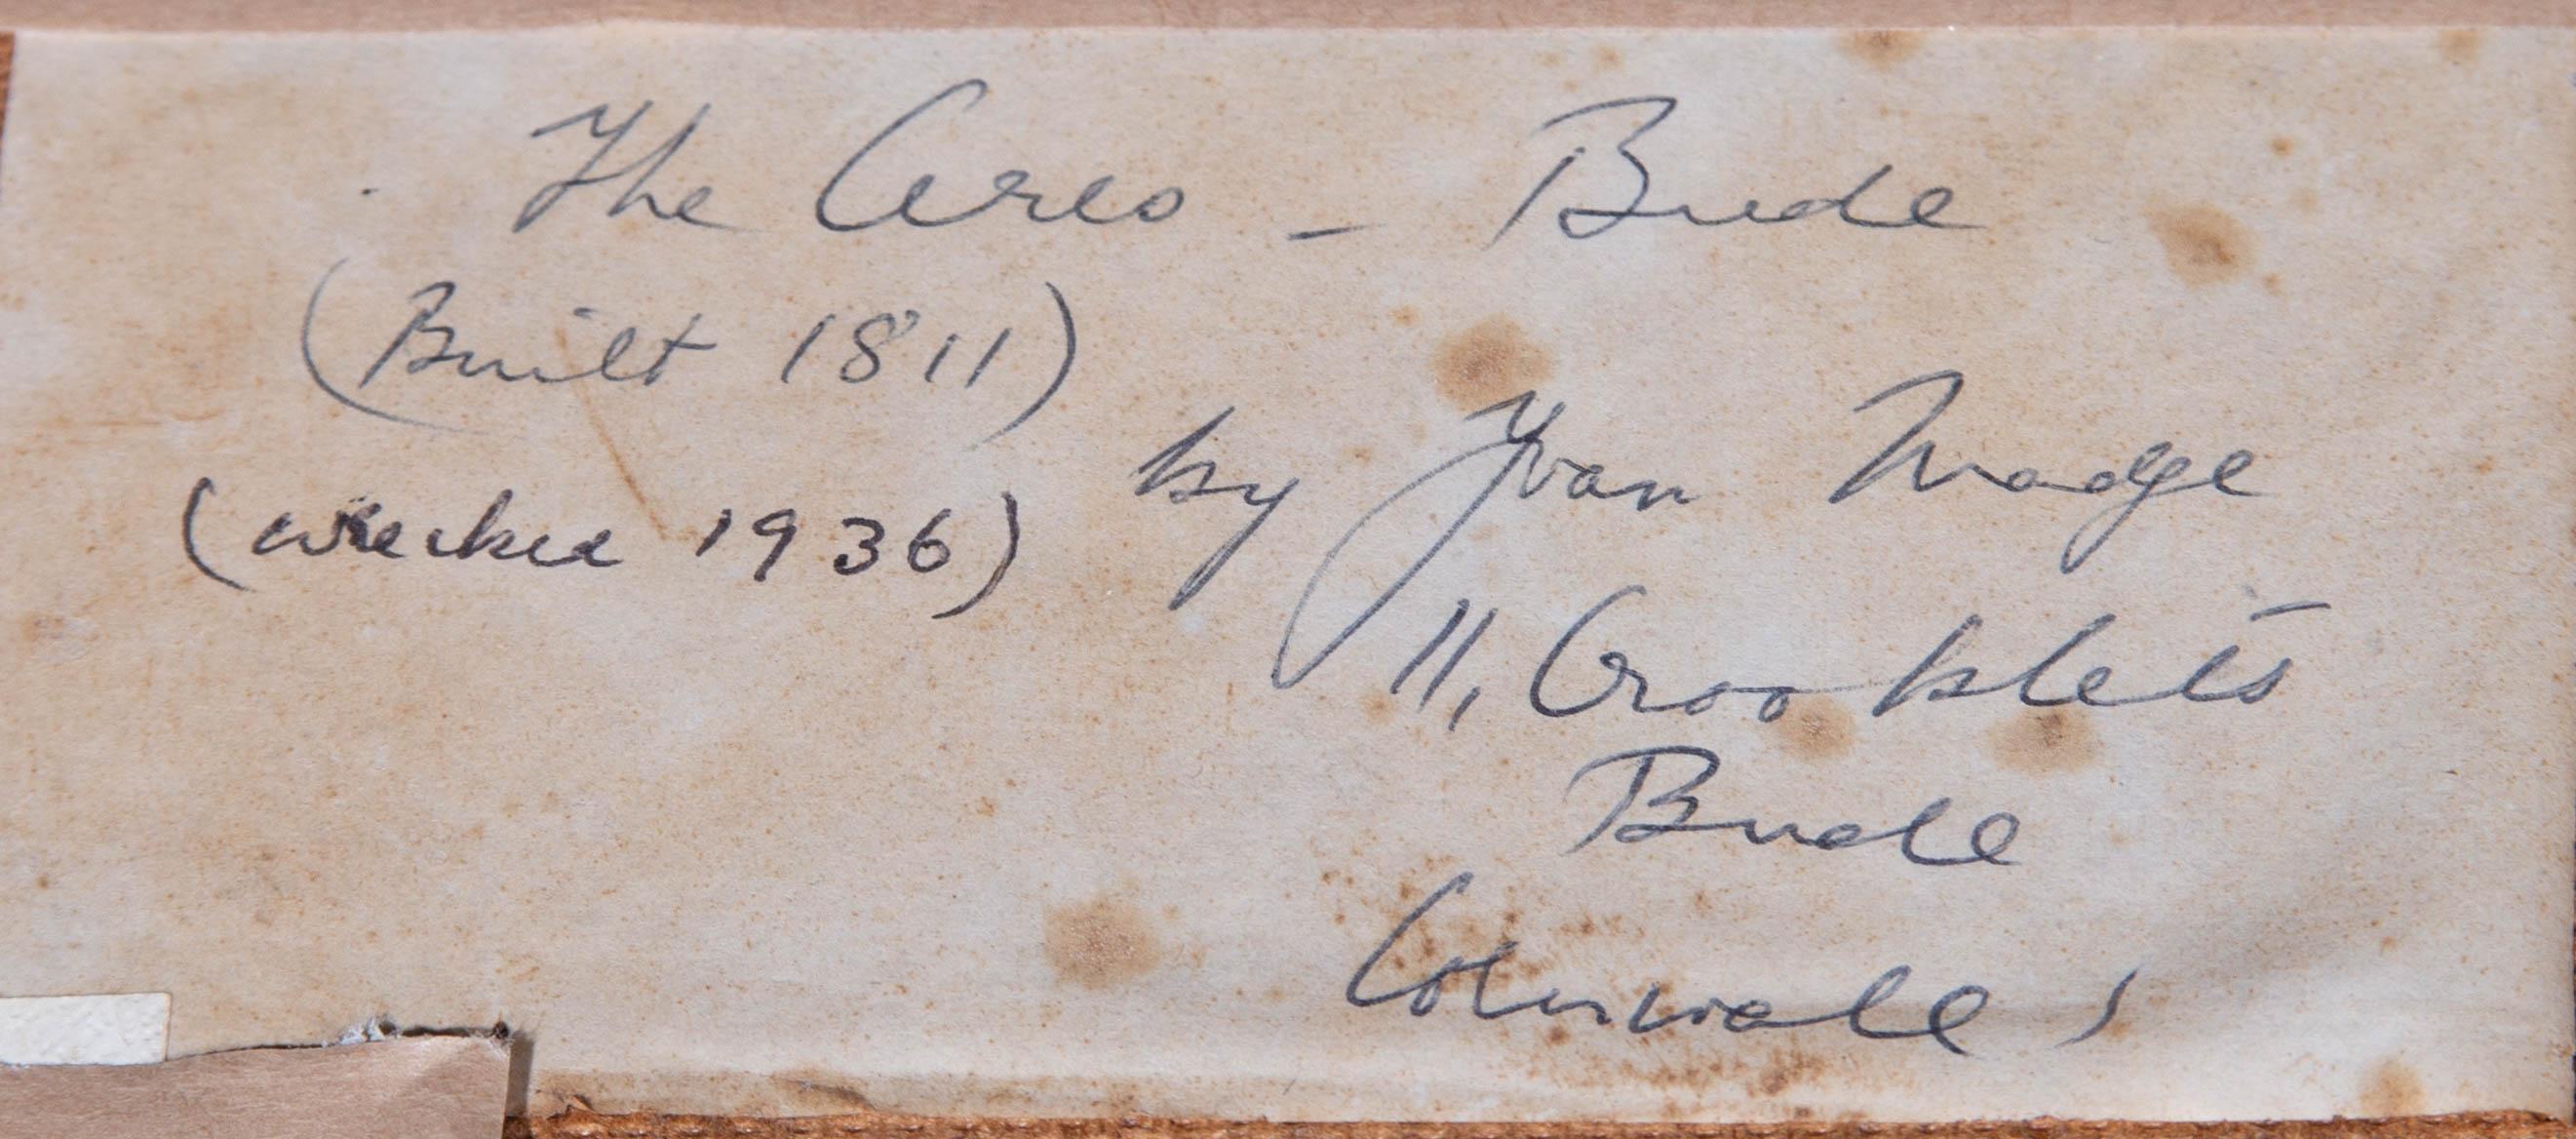 The Ceres - Bude
(Built 1811)
(wrecked 1936)
by Ivan Wadge
11, Crooklets
Bude
Cornwall